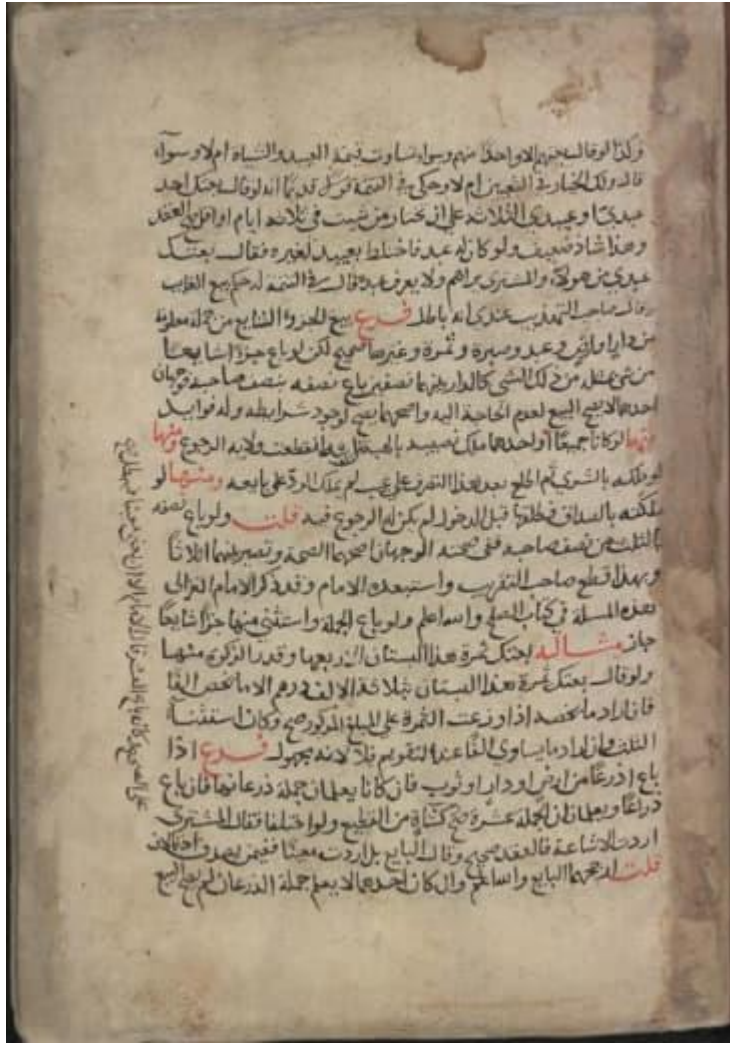 وكذا لو قال بعتهم الا واحدا منهم وسواء تساوت قيمة العبيد والشياه ام لا وسواء
قال ولك الخيار في التعيين ام لا وحكى في التتمة قولا قديما انه لو قال بعتك احد
عبدي او عبيدي الثلاثة على ان تختار من شئت في ثلاثة ايام او اقل صح العقد
وهذا شاذ ضعيف ولو كان له عبد فاختلط بعبيد لغيره فقال بعتك
عبدي من هولاء والمشتري يراهم ولا يعرف عبده قال في التتمة له حكم بيع الغايب
وقال صاحب التهذيب عندي انه باطل فرع بيع الجزؤ الشايع من جملة معلومة
من دار او ارض وعبد وصبرة وثمرة وغيرها صحيح لكن لو باع جزءا شايعا
من شي بمثله من ذلك الشي كالدار بينهما نصفين باع نصفه بنصف صاحبه فوجهان
احدهما لا يصح البيع لعدم الحاجة اليه واصحهما يصح لوجود شرايطه وله فوايد
منها لو كانا جميعا او احدهما ملك نصيبه بالهبة انقطعت ولاية الرجوع ومنها
لو ملكه بالشري ثم اطلع بعد هذا التصرف على عيب لم يملك الرد على بايعه ومنها لو
ملكته بالصداق فطلقها قبل الدخول لم يكن له الرجوع فيه قلت ولو باع نصفه
بالثلث من نصف صاحبه ففي صحته الوجهان اصحهما الصحة وتصير بينهما اثلاثا
وبهذا قطع صاحب التقريب واستبعده الامام وقد ذكر الامام الغزالي
هذه المسلة في كتاب الصلح والله اعلم ولو باع الجملة واستثنى منها جزءا شايعا
جاز مثاله بعتك ثمرة هذا البستان الا ربعها وقدر الزكوة منها
ولو قال بعتك ثمرة هذا البستان بثلاثة الاف درهم الا ما يخص الفا
فان اراد ما يخصه اذا وزعت الثمرة على المبلغ المذكور صح وكان استثناء
الثلث وان اراد ما يساوي الفا عند التقويم فلا لانه مجهول فرع اذا
باع اذرعا من ارض او دار او ثوب فان كانا يعلمان جملة ذرعانها فان باع
ذراعا ويعلمان ان الجملة عشرة صح كشاة من القطيع ولو اختلفا فقال المشتري
اردت الاشاعة فالعقد صحيح وقال البايع بل اردت معينا فمن يصدق احتمالان
قلت ارجحهما البايع والله اعلم وان كان احدهما لا يعلم جملة الذرعان لم يصح البيع